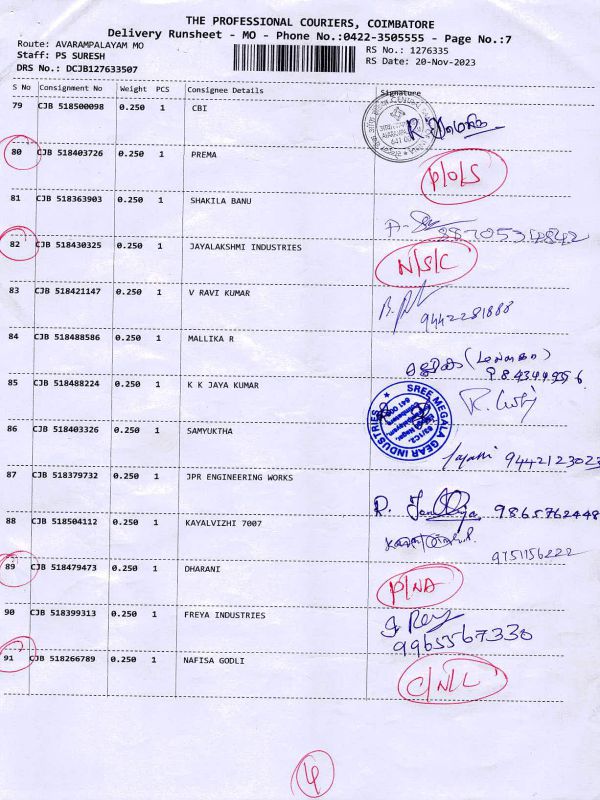 THE PROFESSIONAL COURIERS, COIMBATORE
Delivery Runsheet - MO - Phone No.:0422-3505555 - Page No.:7
Route: AVARAMPALAYAM MO
RS No.: 1276335
Staff: PS SURESH
RS Date: 20-Nov-2023
DRS No.: DCJB127633507
S No Consignment No Weight PCS Consignee Details Signature
79 CJB 518500098 0.250 1 CBI
80 CJB 518403726 0.250 1 PREMA
P/O/S
81 CJB 518363903 0.250 1 SHAKILA BANU
82 CJB 518430325 0.250 1 JAYALAKSHMI INDUSTRIES
N/S/C
83 CJB 518421147 0.250 1 V RAVI KUMAR
9442281888
84 CJB 518488586 0.250 1 MALLIKA R
85 CJB 518488224 0.250 1 K K JAYA KUMAR
SREE MEGALA GEAR INDUSTRIES
86 CJB 518403326 0.250 1 SAMYUKTHA
9442123023
87 CJB 518379732 0.250 1 JPR ENGINEERING WORKS
9865762448
88 CJB 518504112 0.250 1 KAYALVIZHI 7007
9751156222
89 CJB 518479473 0.250 1 DHARANI
P/NA
90 CJB 518399313 0.250 1 FREYA INDUSTRIES
9965567330
91 CJB 518266789 0.250 1 NAFISA GODLI
C/N/L
4